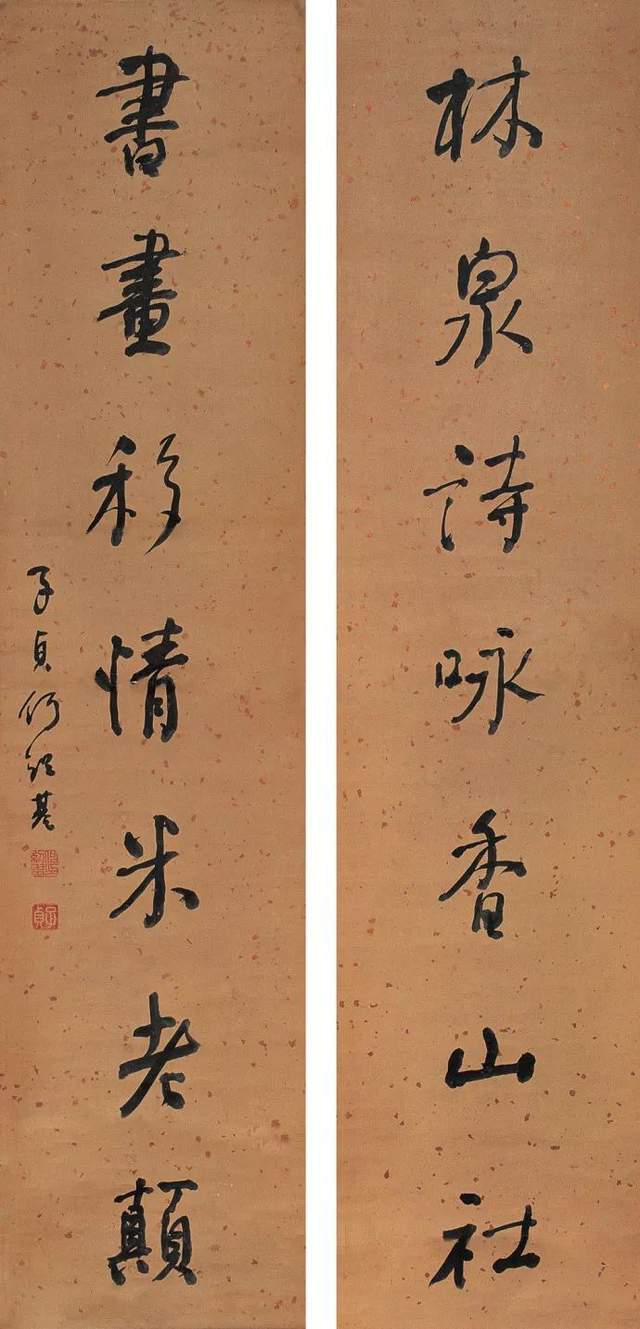 林泉詩咏香山社
書畫移情米老顛
子貞何紹基
子貞